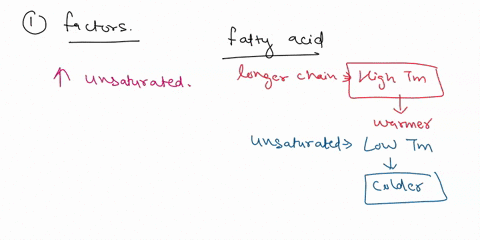 ① factors.
fatty acid
↑ unsaturated.
longer chain → High Tm
↓
warmer
unsaturated → Low Tm
↓
Colder